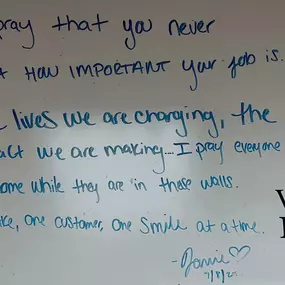 pray that you never
How IMPORTANT your job is.
lives we are changing, the
act we are making...I pray everyone
ame while they are in these walls.
ice, one customer, one smile at a time.